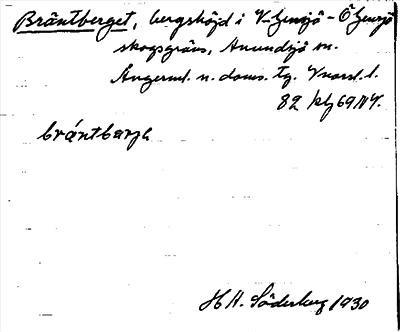 Bräntberget, bergshöjd i V. Gensjö - Ö. Gensjö
skogsgräns, Anundsjö sn.
Ångerml. n. doms. tg. Vnorrl. l.
82 kbl 69 NV.
brántbarjə
H. H. Söderberg 1930